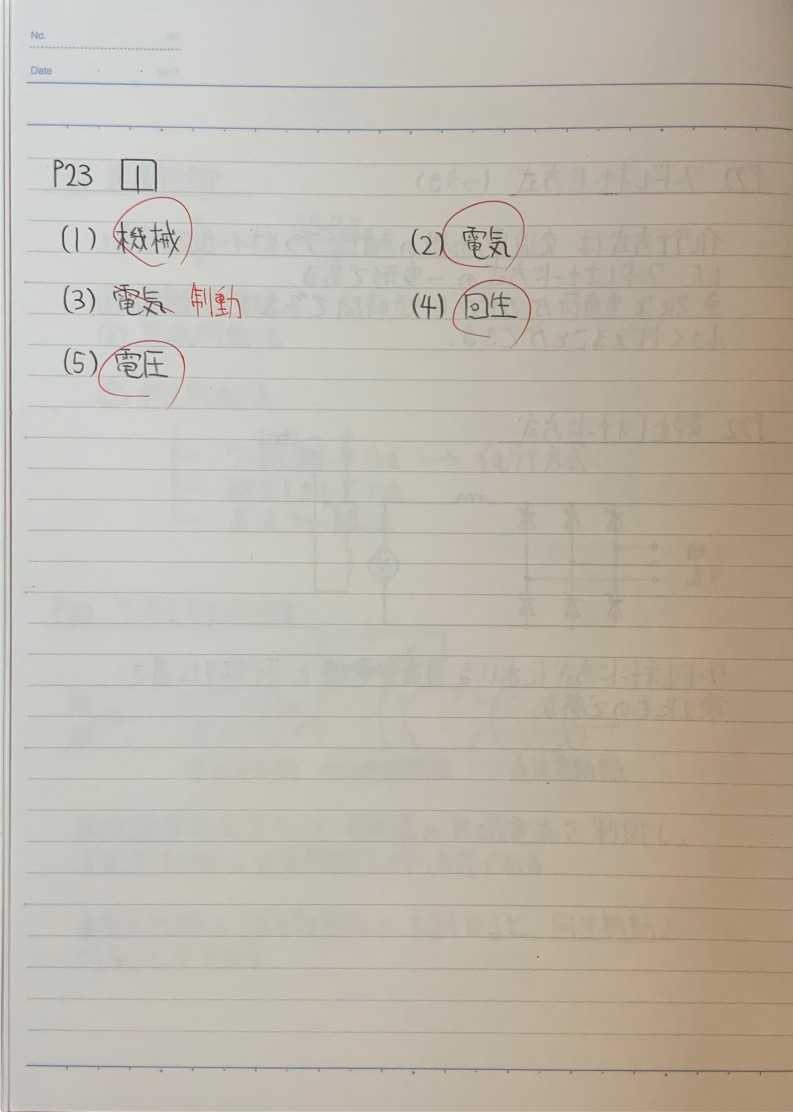 No.
Date
P23 1
(1) 機械 (2) 電気
(3) 電気 制動 (4) 回生
(5) 電圧